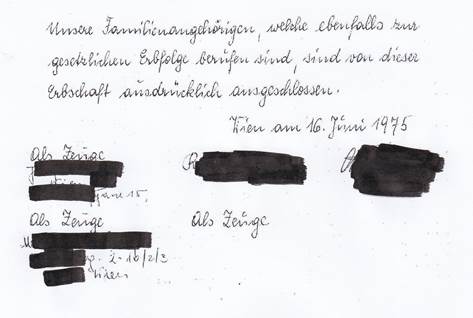 Unsere Familienangehörigen, welche ebenfalls zur
gesetzlichen Erbfolge berufen sind, sind von dieser
Erbschaft ausdrücklich ausgeschlossen.
Wien am 16. Juni 1975
Als Zeuge
Wien
15,
Als Zeuge Als Zeuge
2-16/2/3
Wien